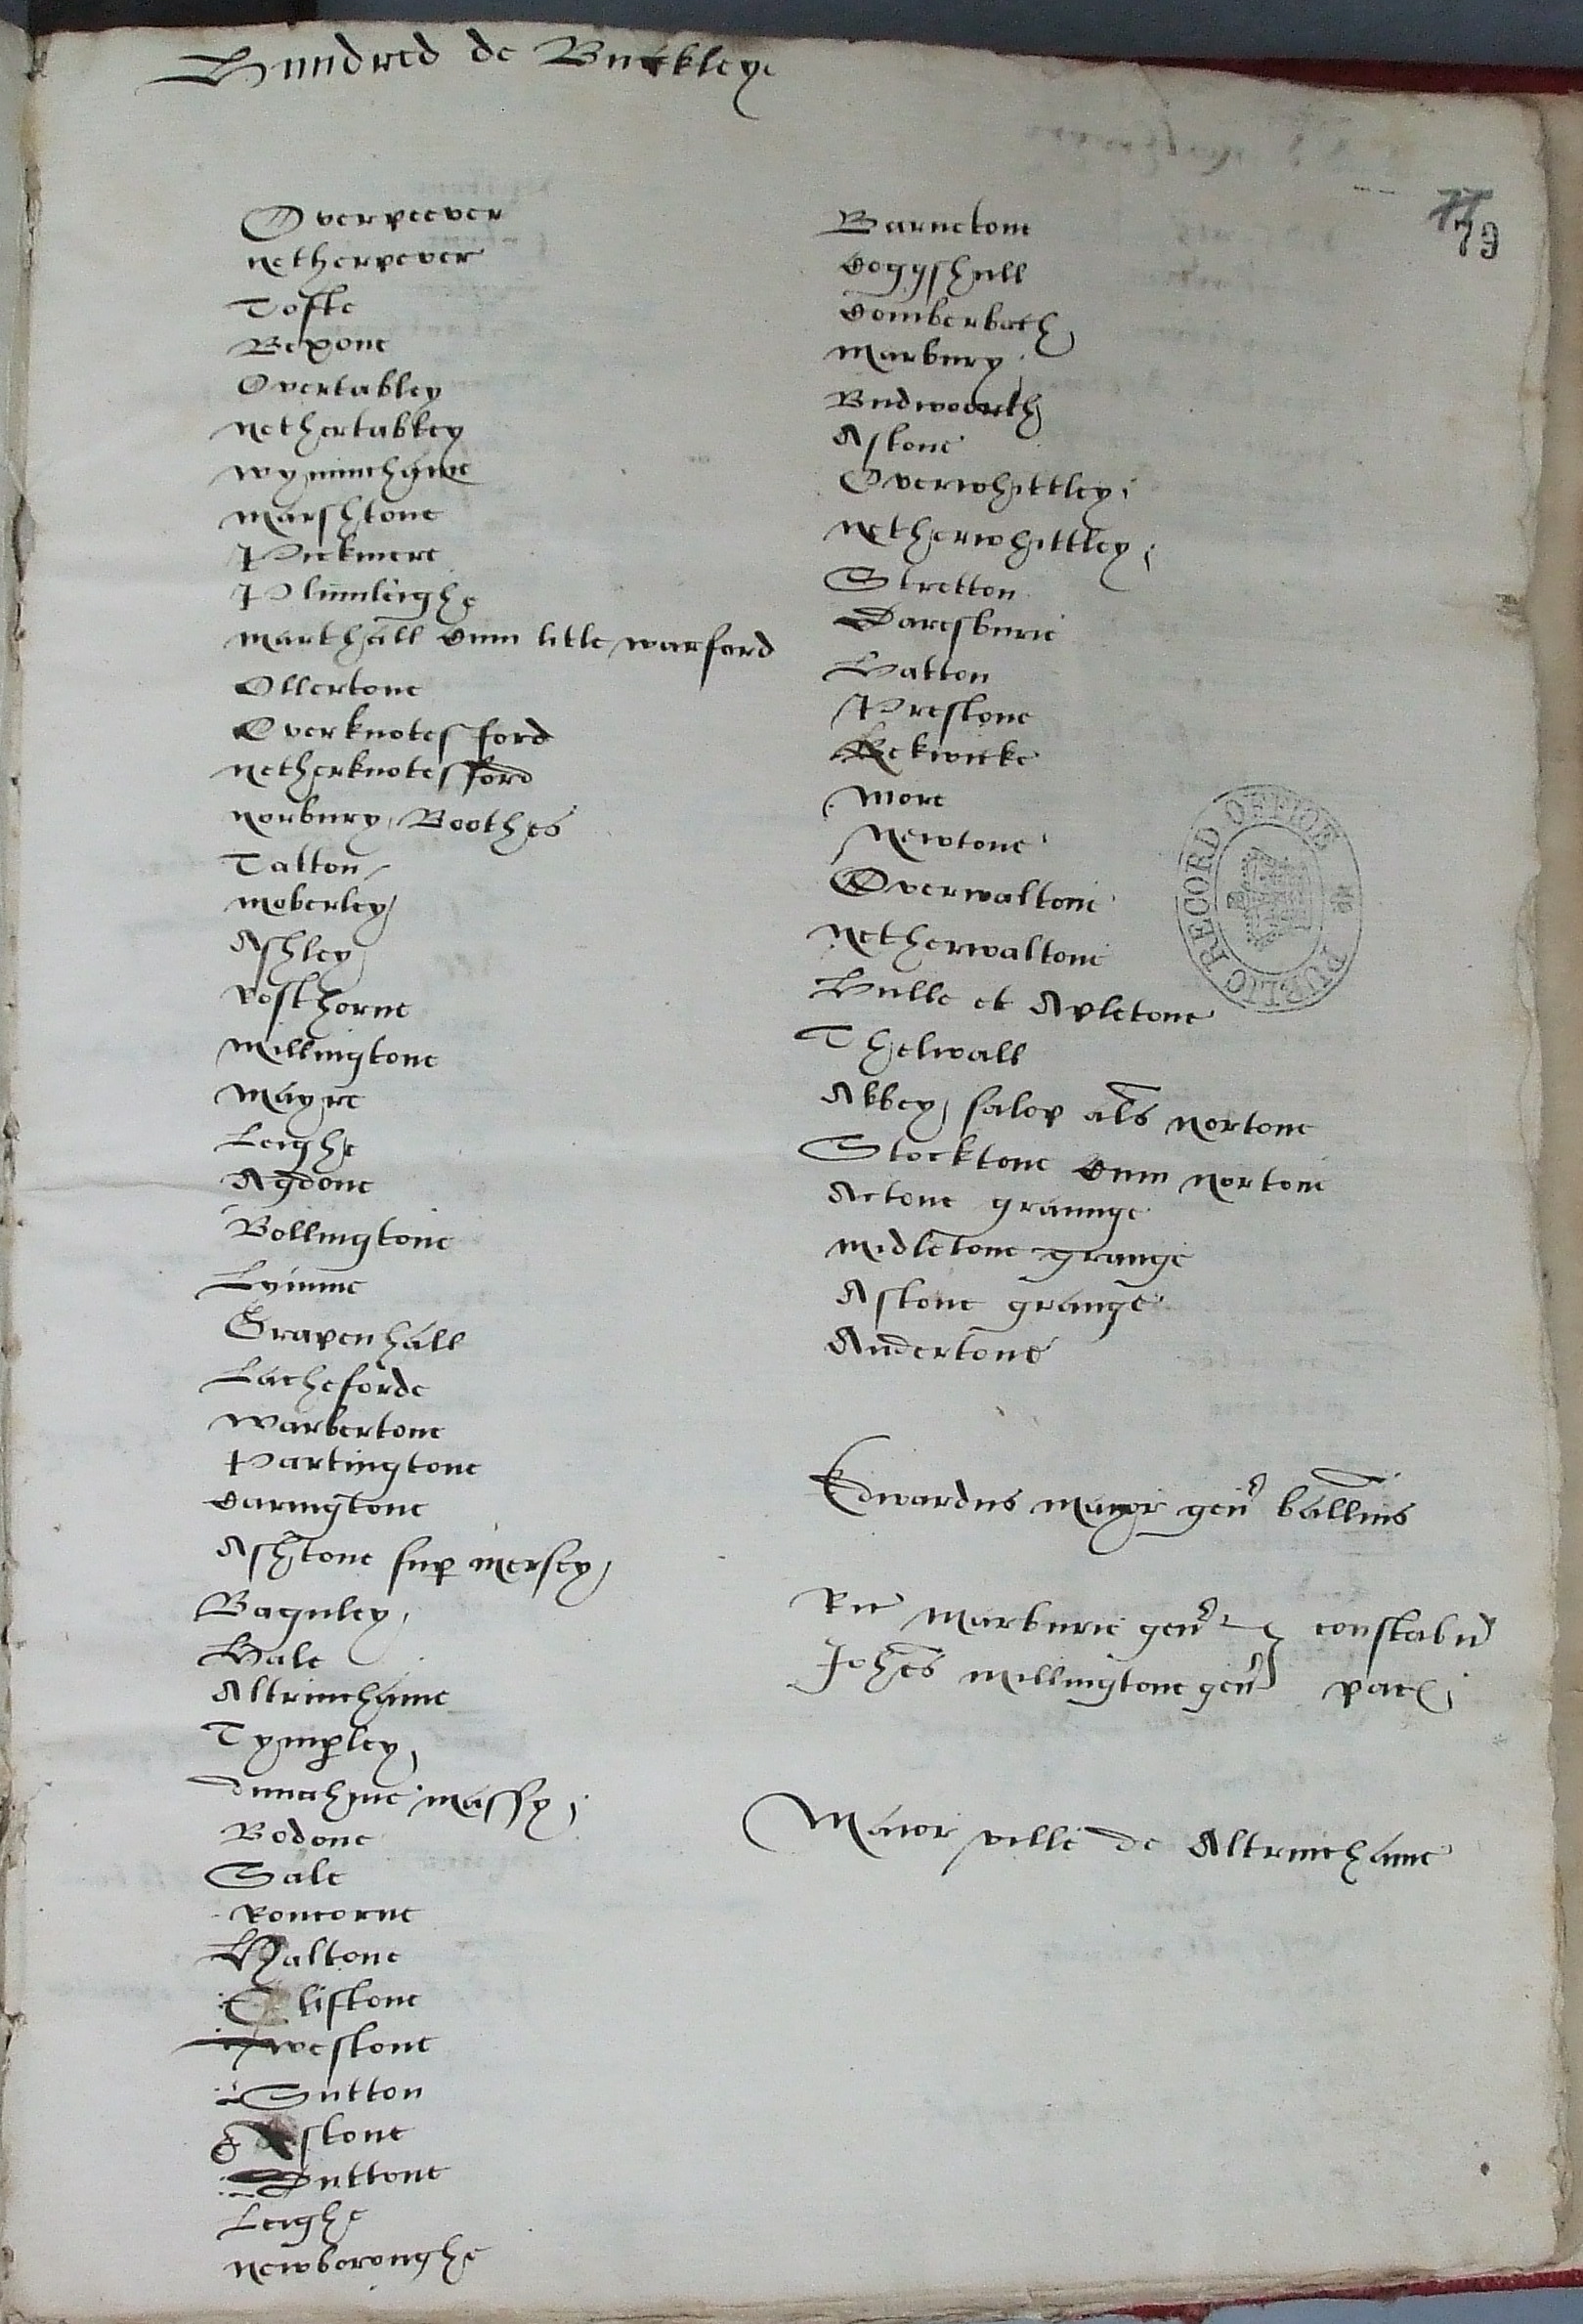 Hundred de Buckley
77
79
Overpeever
netherpever
Tofte
Bexone
Overtabley
nethertabley
wyminchame
marshtone
Pickmere
Plumleighe
marthall cum litle warford
Ollertone
Overknotesford
netherknotesford
norbury Boothes
Tatton
moberley
Ashley
rosthorne
millingtone
mayre
Leighe
Agdone
Bollingtone
Lymme
Grapenhall
Lacheforde
warbertone
Partingtone
Caringtone
Ashtone sup mersey
Baguley
Hale
Altrinchame
Tymperley
dunchme massy
Bodone
Sale
Roncorne
Haltone
Cliftone
westone
Sutton
Astone
Duttone
Leighe
newboroughe
Barnetone
Coggshull
Comberbach
marbury
Budwoorth
Astone
Overwhittley
netherwhittley
Stretton
Daresburie
Hatton
Prestone
Keckwicke
More
Newtone
Overwaltone
netherwaltone
Hulle et Apletone
Thelwall
Abbey salop als nortone
Stocktone cum nortone
Actone graunge
midletone grange
Astone grange
Andertone
Edwardus mayor gen ballius
Ric marburie gen constabul
Johes millingtone gen pac
Maior ville de Altrinchame
PUBLIC RECORD OFFICE